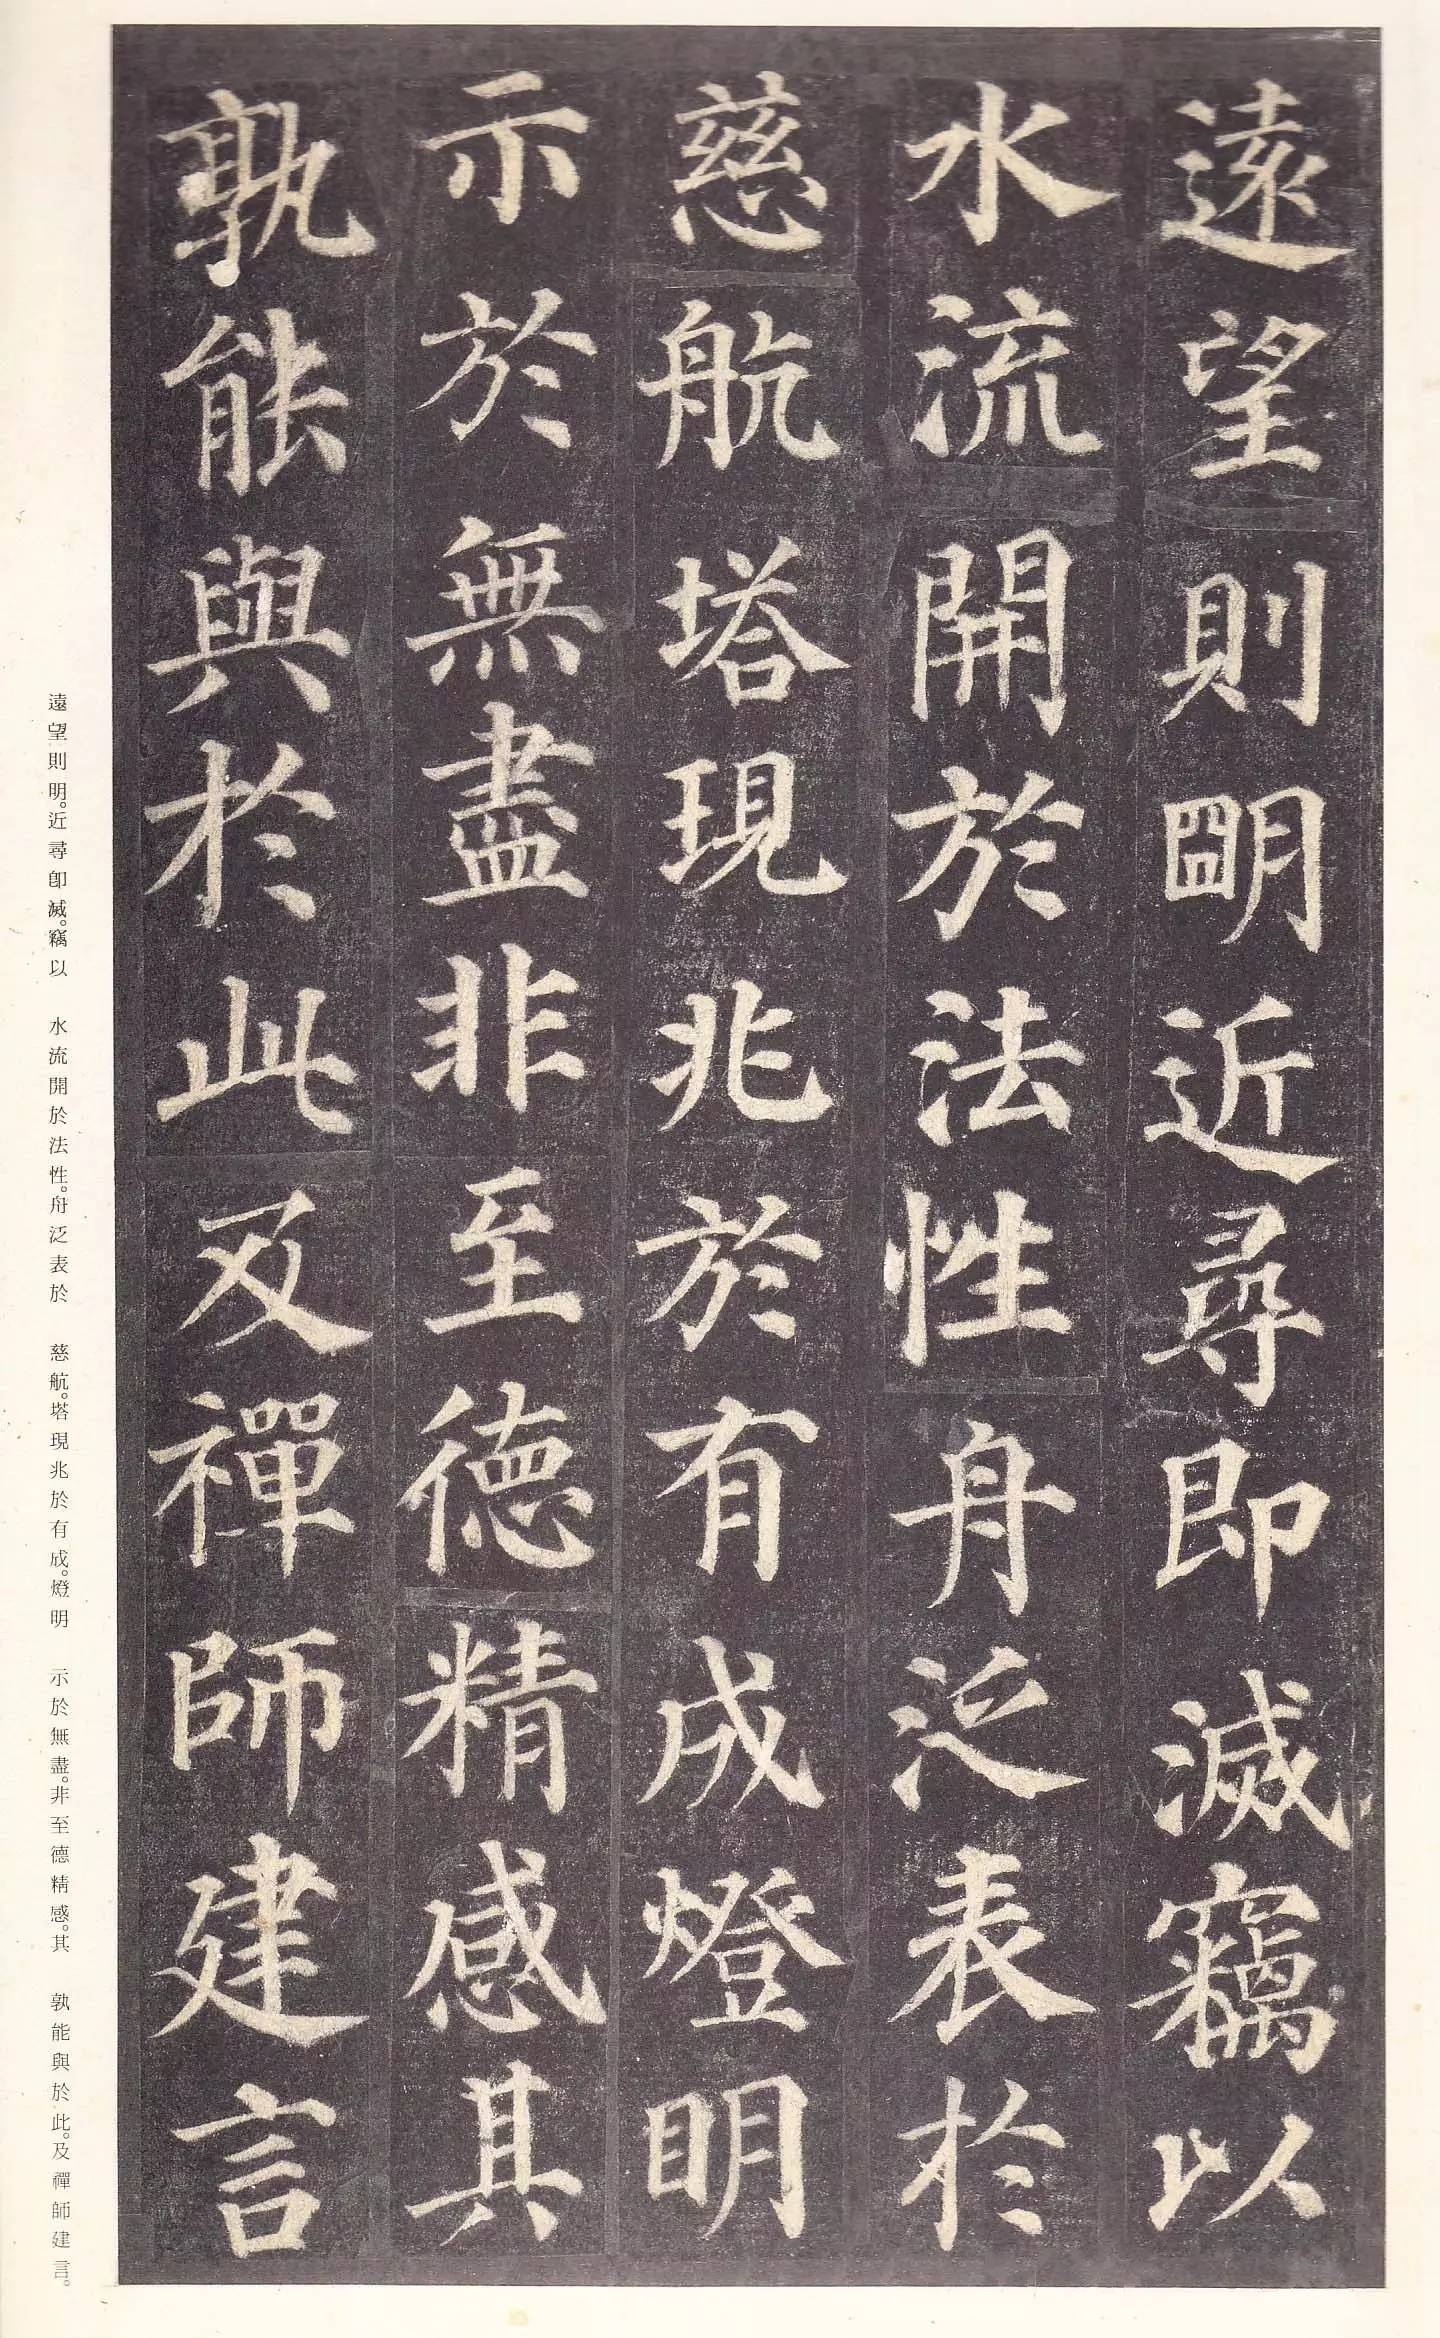 遠望則朙近尋即滅竊以
水流開於法性舟泛表於
慈航塔現兆於有成燈明
示於無盡非至德精感其
孰能與於此及禪師建言
遠望則明。近尋卽滅。竊以　水流開於法性。舟泛表於　慈航。塔現兆於有成。燈明　示於無盡。非至德精感。其　孰能與於此。及禪師建言。